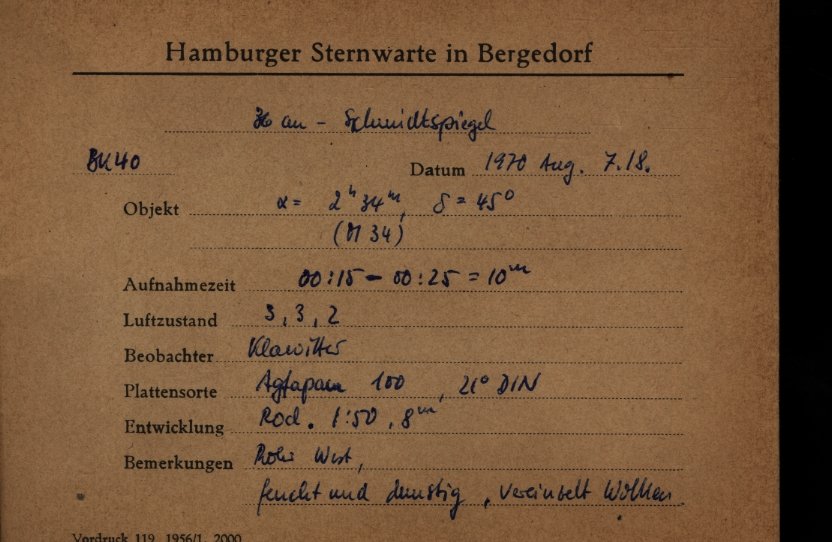 Hamburger Sternwarte in Bergedorf
36 cm - Schmidtspiegel
BK40 Datum 1970 Aug. 7./8.
Objekt α = 2ʰ 34ᵐ, δ = 45°
(M 34)
Aufnahmezeit 00:15 - 00:25 = 10ᵐ
Luftzustand 3, 3, 2
Beobachter Klawitter
Plattensorte Agfapan 100, 21° DIN
Entwicklung Rod. 1:50, 8ᵐ
Bemerkungen Rohr West,
feucht und dunstig, vereinzelt Wolken
Vordruck 119 1956/1 2000